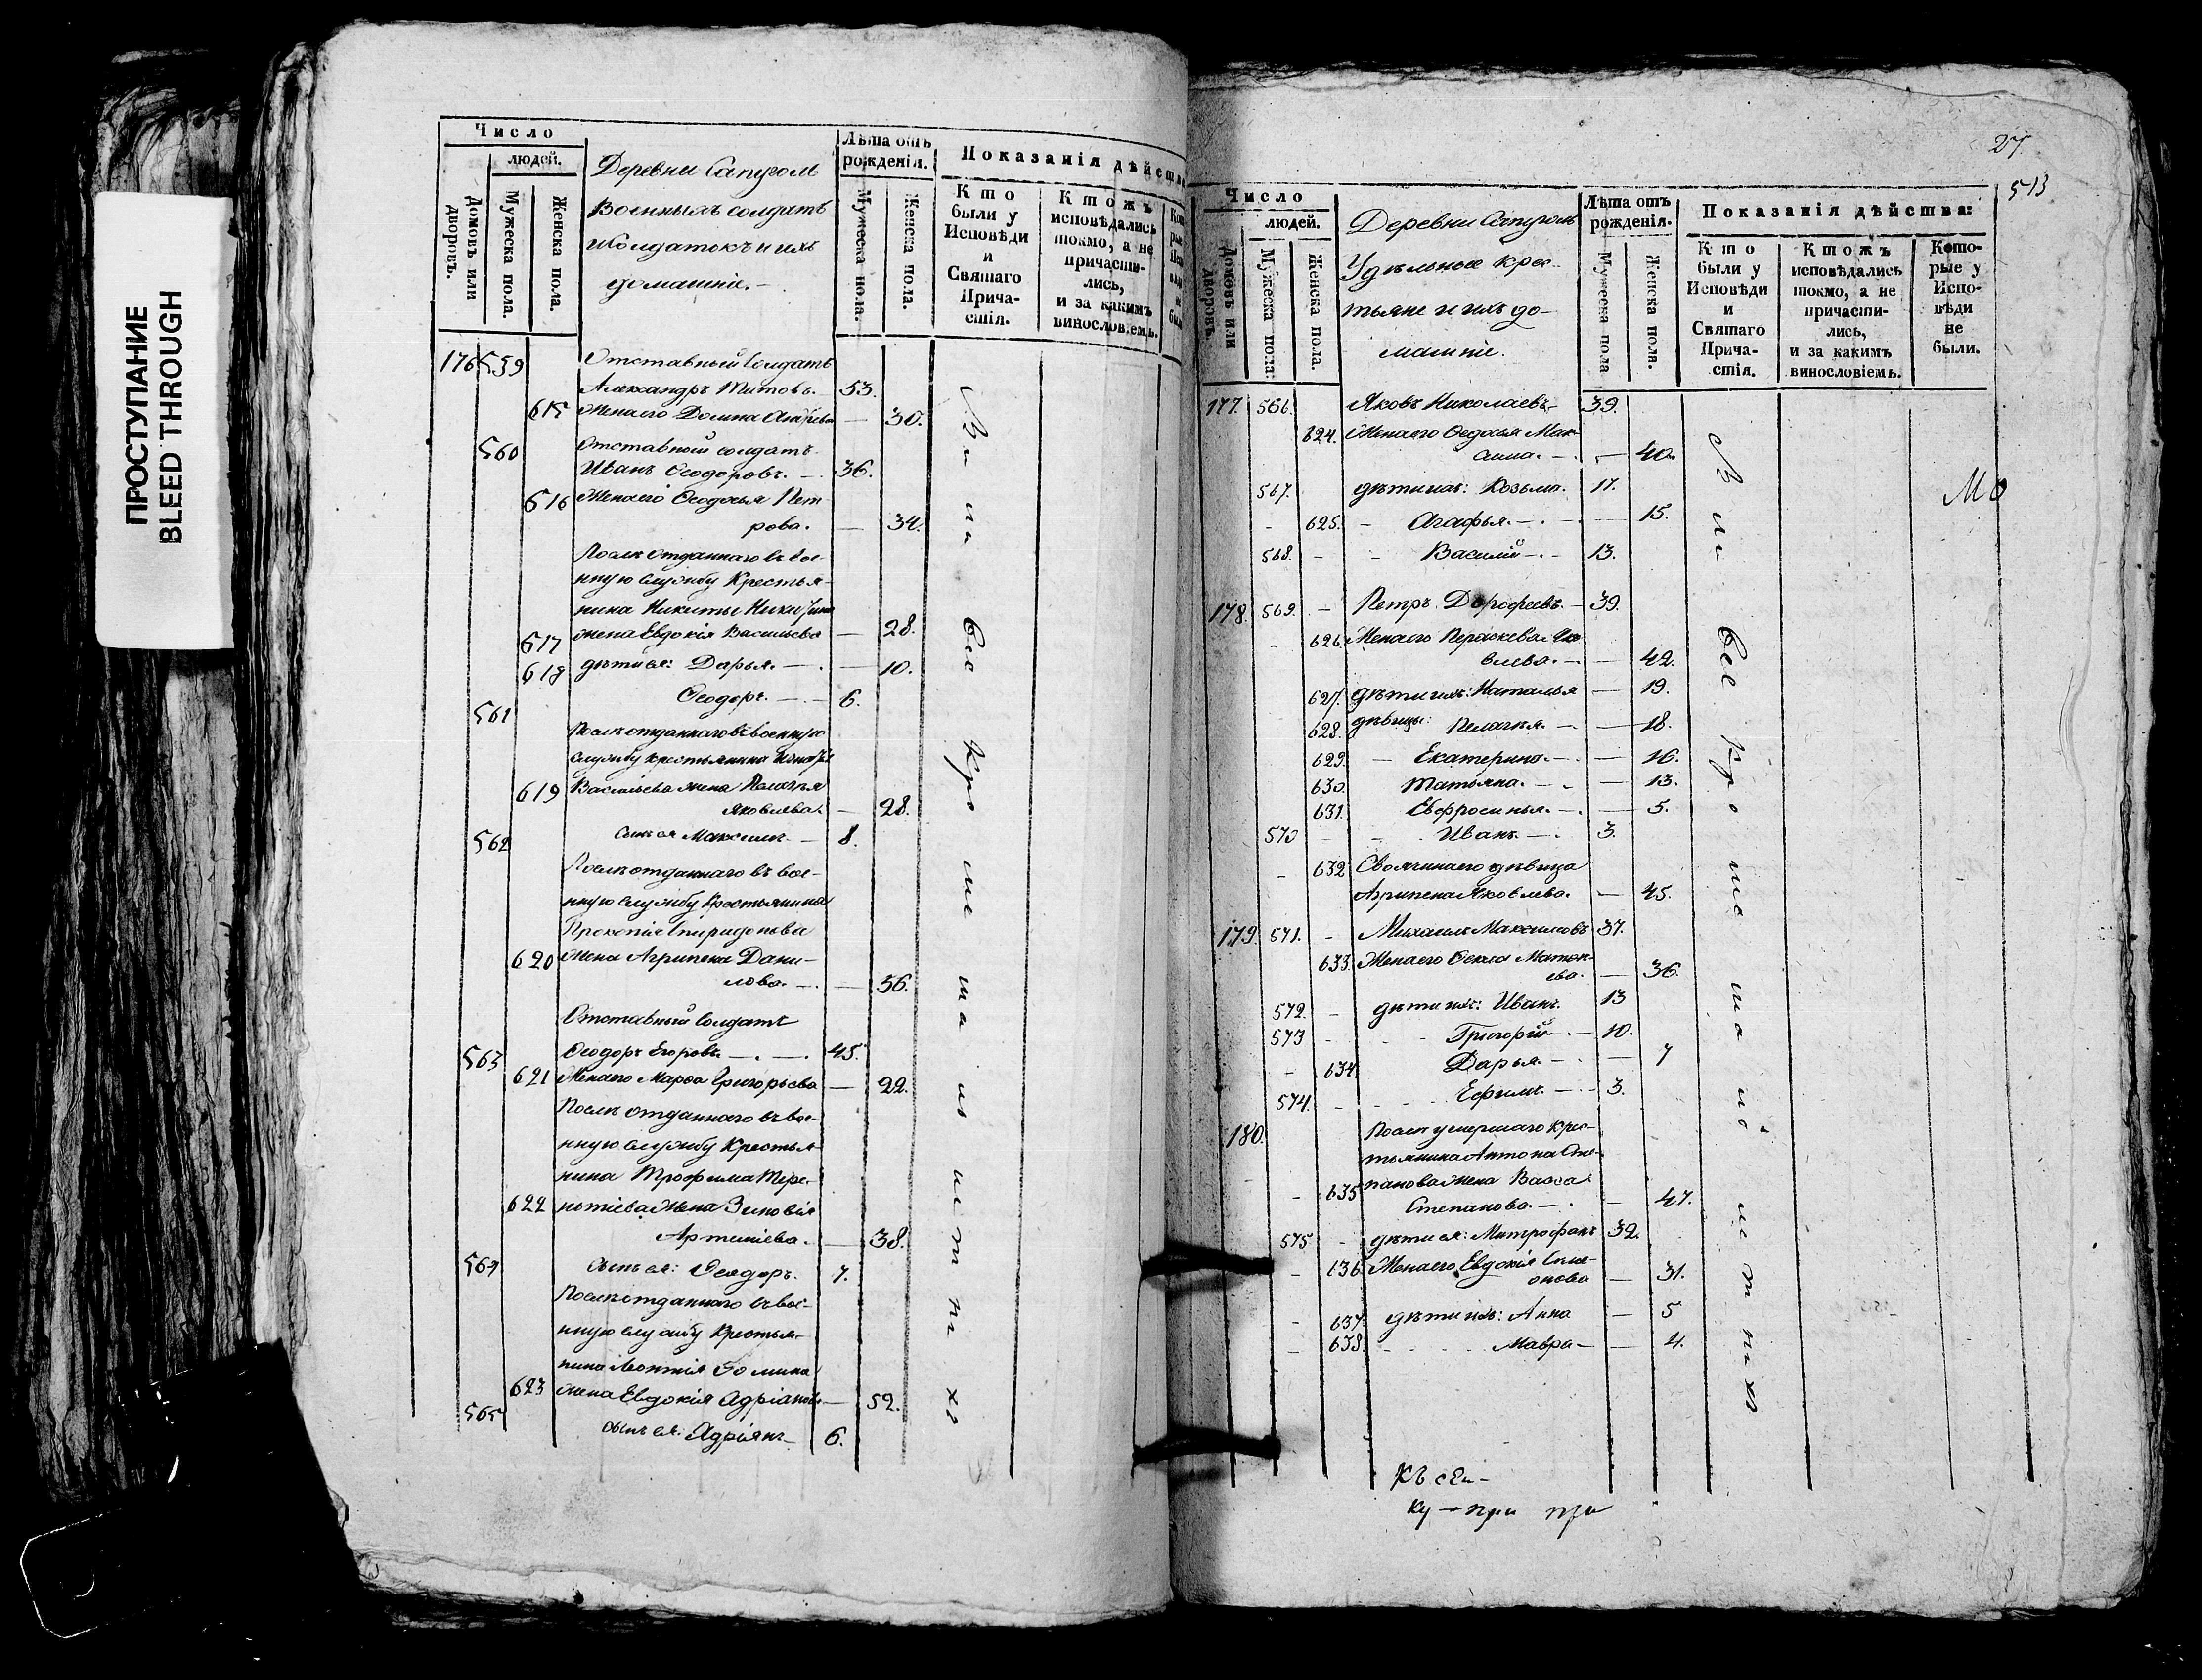 ПРОСТУПАНИЕ
BLEED THROUGH
Число
людей.
Домовъ или дворовъ.
Мужеска пола.
Женска пола.
Деревни Сапуголь
Военныхъ солдатъ
Исолдатокъ и ихъ
домашніе.
Лѣта отъ рожденія.
Мужеска пола.
Женска пола.
Показанія дѣйства
Кто были у Исповѣди и Святаго Причастія.
Ктожъ исповѣдались токмо, а не причастились, и за какимъ винословіемъ.
176 559 Отставный Солдатъ
Александръ Титовъ. 53.
615 Жена его Домна — 30.
560 Отставной солдатъ
Иванъ Ѳеодоровъ. — 36.
616 Жена его Ѳеодосья Пет-
рова. — 34.
Послѣ отданнаго въ вое-
нную службу Крестья-
нина Никиты
617 жена Евдокія Васильева — 28.
618 дѣти ея: Дарья. — 10.
561 Ѳеодоръ. — 6.
Послѣ отданнаго въ военную
службу крестьянина
619 Васильева жена Пелагѣя
Яковлева. — 28.
562 Сынъ ея Максимъ — 8.
Послѣ отданнаго въ вое-
нную службу Крестьянина
Прокопія Спиридонова
620 Жена Агрипена Дани-
лова. — 36.
Отставный Солдатъ
563 Ѳеодоръ Егоровъ — 45.
621 Жена его Марѳа Григорьева — 22.
Послѣ отданнаго въ вое-
нную службу Крестья-
нина Трофима Тере-
622 нтіева Жена Зиновія
Артемiева. — 38.
564 Сынъ ея: Ѳеодоръ. 7.
Послѣ отданнаго въ вое-
нную службу Крестья-
нина Леонтія Ѳомина
623 жена Евдокія Адріанова — 52.
565 сынъ ея: Адріянъ — 6.
Были все кроме
27.
513
Число
людей.
Домовъ или дворовъ.
Мужеска пола.
Женска пола.
Деревни Сапуголь
Удѣльные крес-
тьяне и ихъ до-
машніе.
Лѣта отъ рожденія.
Мужеска пола
Женска пола.
Показанія дѣйства:
Кто были у Исповѣди и Святаго Причастія.
Ктожъ исповѣдались токмо, а не причастились, и за какимъ винословіемъ.
Которые у Исповѣди не были.
177. 566. Яковъ Николаевъ — 39.
624. Жена его Ѳедосья Мак-
сима. — 40.
567. дѣти ихъ: Козьма. 17.
625. — Агафья. — 15.
568. — Василій — 13.
178. 569. — Петръ Дорофеевъ. — 39.
626. Жена его Параскева Яко-
влева. — 42.
627. дѣти ихъ: Наталья — 19.
628. дѣвицы: Пелагѣя. — 18.
629. — Екатерина. — 16.
630. Татьяна. — 13.
631. Евфросинья. — 5.
570 — Иванъ. — 3.
632 Своячина его дѣвица
Агрипена Яковлева. — 45.
179. 571. — Михаилъ Максимовъ 37.
633. Жена его Ѳекла Матве-
ева. — 36.
572. — дѣти ихъ: Иванъ. 13
573 — Григорій — 10.
634 Дарья — 7
574. — Ефимъ. — 3.
180. Послѣ умершаго Крес-
тьянина Антона Сте-
635 панова жена Васса
Степанова. — 47.
575 — дѣти ея: Митрофанъ 32.
636. Жена его Евдокія Симе-
онова — 31.
637. дѣти ихъ: Анна — 5
638. Мавра — 4.
Были все кроме
Мо